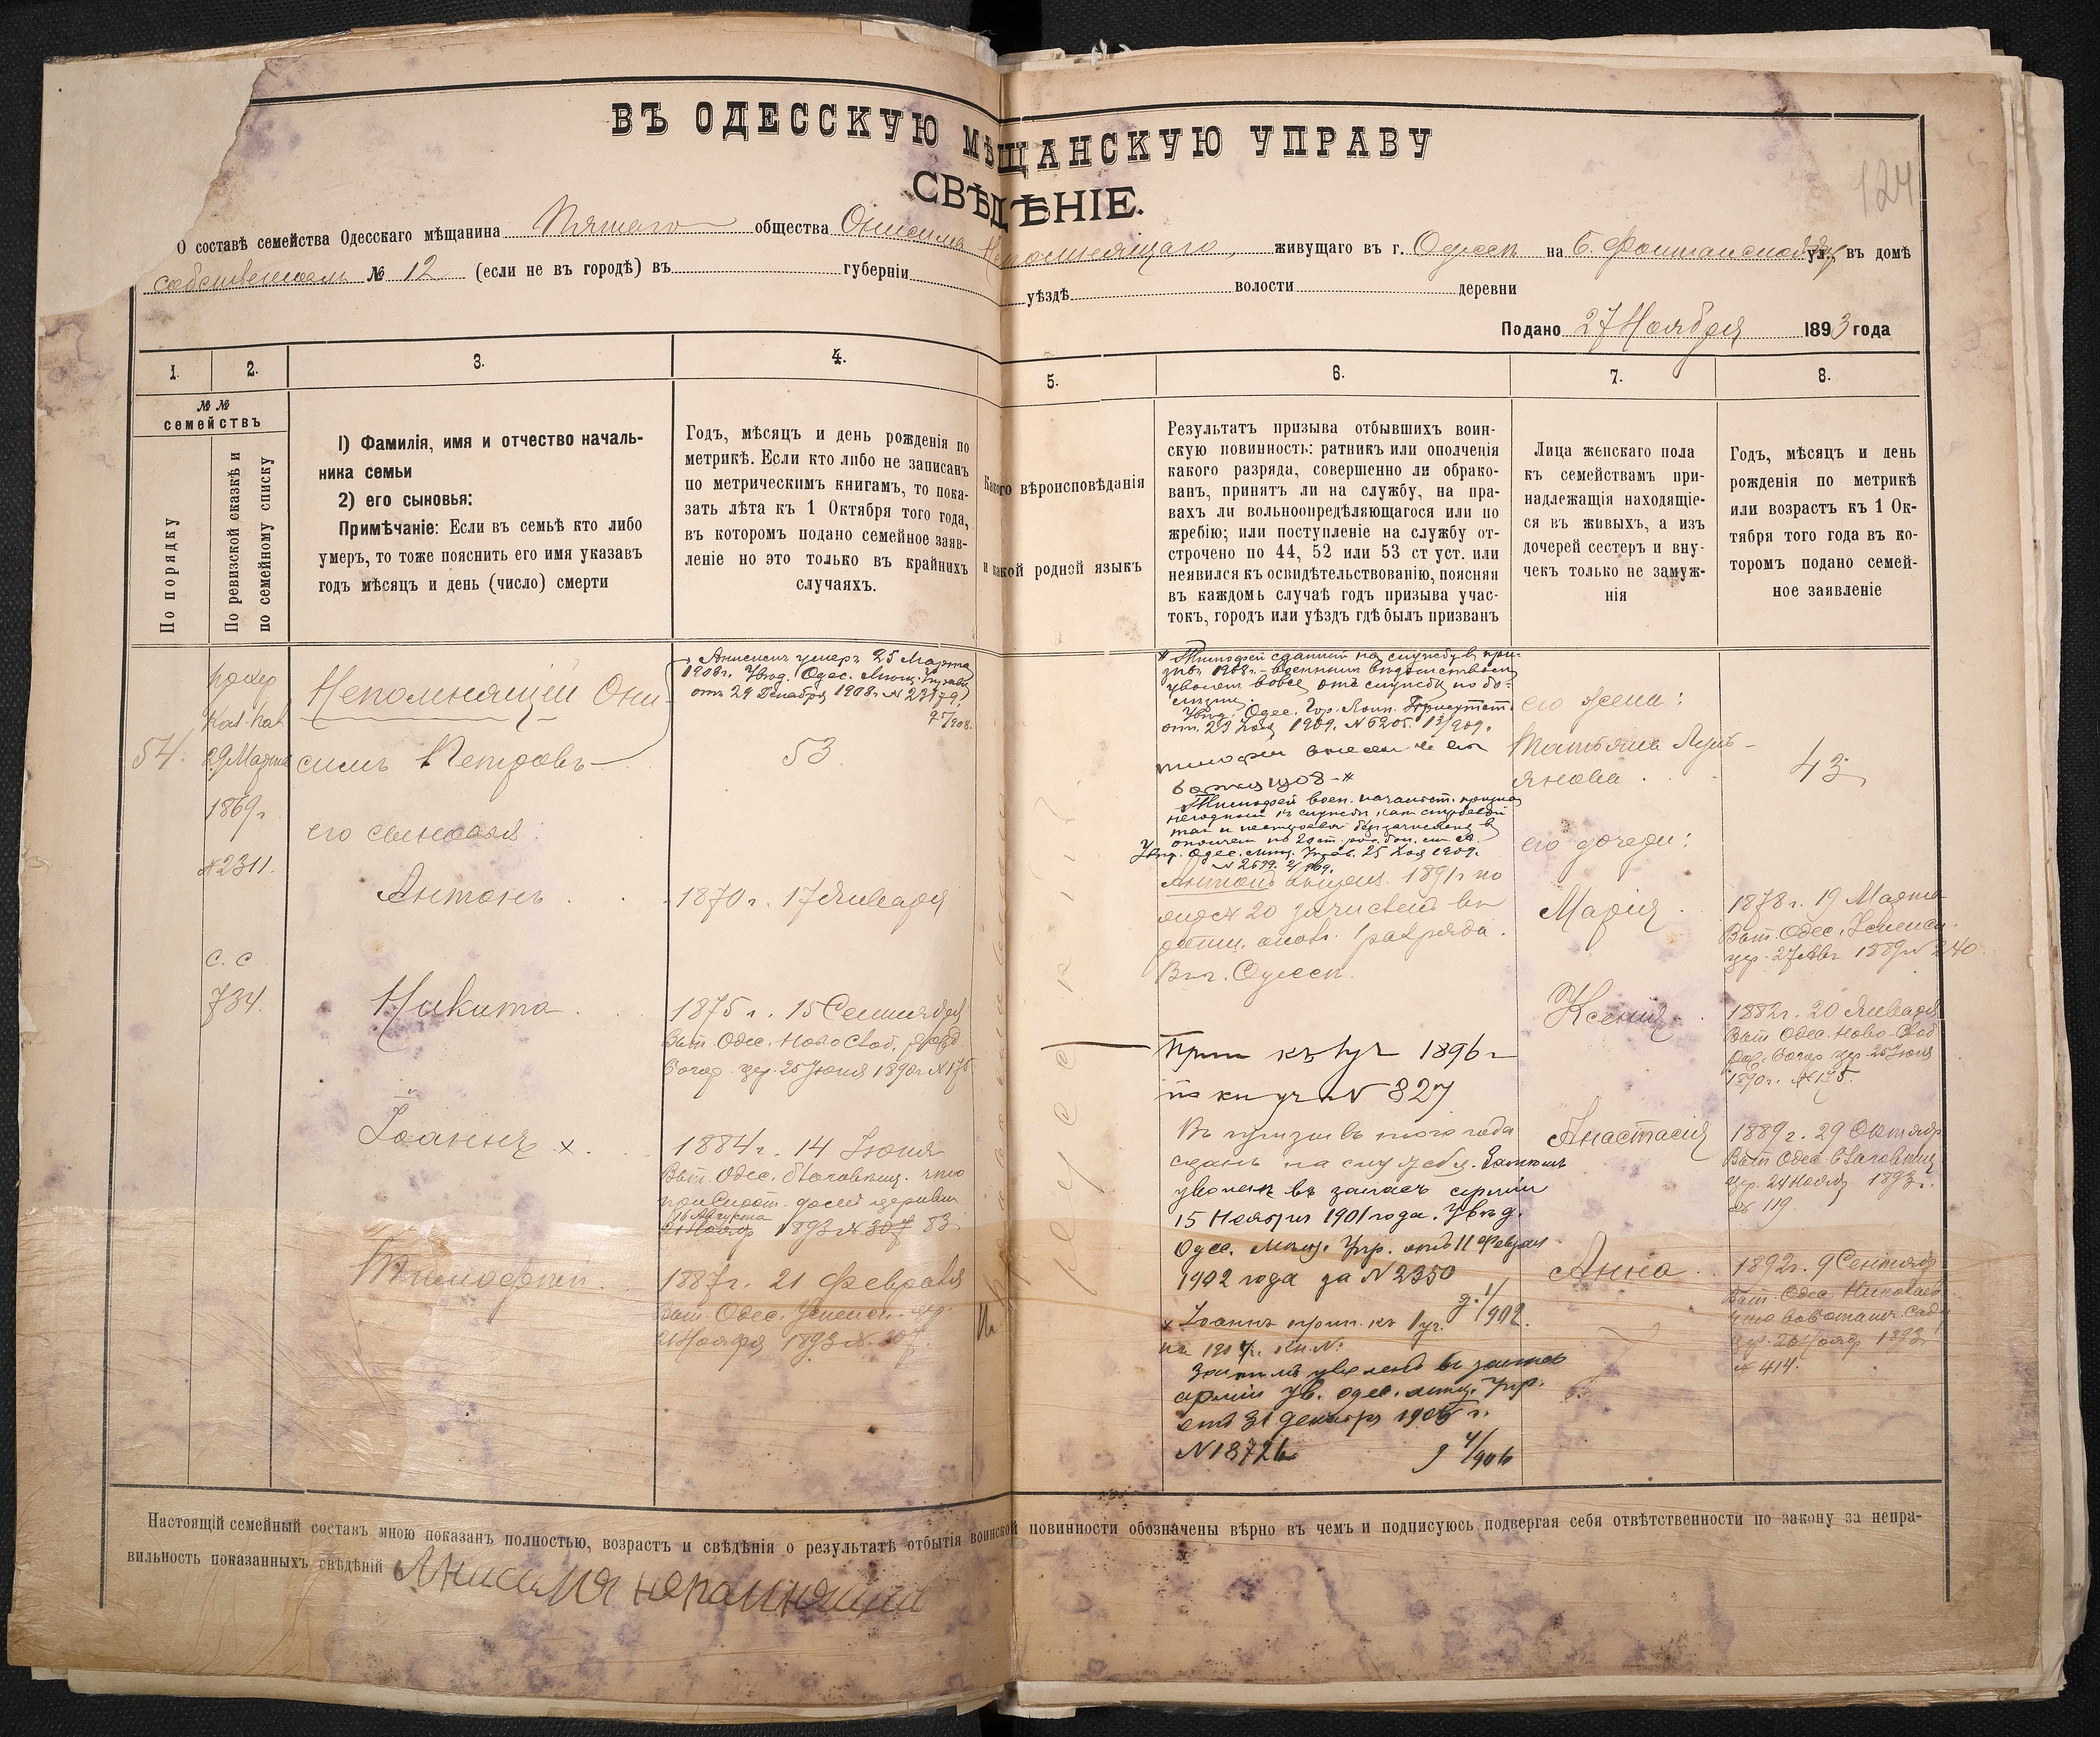 124
ВЪ ОДЕССКУЮ МѢЩАНСКУЮ УПРАВУ
СВѢДѢНІЕ.
О составѣ семейства Одесскаго мѣщанина Пятаго общества Онисима Непомнящаго, живущаго въ г. Одессѣ на Б. Фонтанской ул. въ домѣ
собственномъ № 12 (если не въ городѣ) въ губерніи уѣздѣ волости деревни
Подано 27 Ноября 1893 года
1. 2. 3. 4. 5. 6. 7. 8.
№№
семействъ
По порядку
По ревизской сказкѣ и
по семейному списку
1) Фамилія, имя и отчество началь-
ника семьи
2) его сыновья:
Примѣчаніе: Если въ семьѣ кто либо
умеръ, то тоже пояснить его имя указавъ
годъ мѣсяцъ и день (число) смерти
Годъ, мѣсяцъ и день рожденія по
метрикѣ. Если кто либо не записанъ
по метрическимъ книгамъ, то пока-
зать лѣта къ 1 Октября того года,
въ которомъ подано семейное заяв-
леніе но это только въ крайнихъ
случаяхъ.
Какого вѣроисповѣданія
и какой родной языкъ
Результатъ призыва отбывшихъ воин-
скую повинность: ратникъ или ополченія
какого разряда, совершенно ли обрако-
ванъ, принятъ ли на службу, на пра-
вахъ ли вольноопредѣляющагося или по
жребію; или поступленіе на службу от-
строчено по 44, 52 или 53 ст уст. или
неявился къ освидѣтельствованію, поясняя
въ каждомъ случаѣ годъ призыва учас-
токъ, городъ или уѣздъ гдѣ былъ призванъ
Лица женскаго пола
къ семействамъ при-
надлежащія находящіе-
ся въ живыхъ, а изъ
дочерей сестеръ и вну-
чекъ только не замуж-
нія
Годъ, мѣсяцъ и день
рожденія по метрикѣ
или возрастъ къ 1 Ок-
тября того года въ ко-
торомъ подано семей-
ное заявленіе
54.
29 Марта
1869 г
№ 2311.
с. с
734.
Непомнящій Они-
симъ Петровъ
его сыновья:
Антонъ
Никита
Іоаннъ х.
Тимофей.
Анисимъ умеръ 25 Марта
1908 г. Увѣд. Одес. Мѣщ. Управы
отъ 29 Декабря 1908 г. № 23179.
53
1870 г. 17 Января
1875 г. 15 Сентября
Вып. Одес. Ново Слоб. Рожд
Богор. цер. 25 Іюня 1890 г № 175
1884 г. 14 Іюня
Вып. Одес. Благовѣщ. что
при Сирот. домѣ церкви
16 Августа
1893 № 307 83
1887 г. 21 Февраля
Вып. Одес. Успенск. цер.
21 Ноября 1893 № 307.
* Тимофей сданный на службу въ при-
зывъ 1908 г. военнымъ вѣдомствомъ
уволенъ вовсе отъ службы по бо-
лѣзни
Увѣд. Одес. Гор. Воин. Присутст.
1909. № 6205.
Одес. Мѣщ. Управ. 1909.
Антонъ 1891 г по
№ 20 зачисленъ въ
ратн. опол. 1 разряда.
Въ г. Одессѣ.
Прип къ 1 уч 1896 г
№ 827
Въ призывъ того года
сданъ на службу. Затѣмъ
уволенъ въ запасъ арміи
15 Ноября 1901 года. Увѣд.
Одес. Мѣщ. Упр. отъ 11 Февраля
1902 года за № 2350
х Іоаннъ прип. къ 1 уч.
Затѣмъ уволенъ въ запасъ
арміи Ув. Одес. Мѣщ. Упр.
отъ 31 Декабря 1905 г.
№ 18726
его жена:
Татьяна Лукь-
янова
его дочери:
Марія
Ксенія
Анастасія
Анна
43
1878 г. 19 Марта
Вып. Одес. Успенск.
цер. 1889 № 240
1882 г. 20 Января
Вып Одес. Ново-Слоб
Рож. Богор цер. 25 Іюня
1890 г. № 175.
1889 г. 29 Октября
Вып Одес. Благовѣщ
цер. 24 Ноября 1893 г.
№ 119
1892 г. 9 Сентября
Вып. Одес. Николаев
что въ Ботанич. Саду
цер. 26 Ноября 1893
№ 414.
Настоящій семейный составъ мною показанъ полностью, возрастъ и свѣдѣнія о результатѣ отбытія воинской повинности обозначены вѣрно въ чемъ и подписуюсь подвергая себя отвѣтственности по закону за непра-
вильность показанныхъ свѣдѣній Анисимъ непамнящий